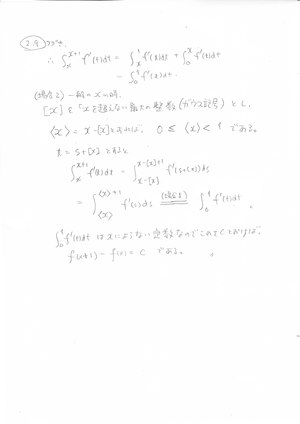 (2.9) つづき.
∴ ∫_x^{x+1} f'(t)dt = ∫_x^1 f'(t)dt + ∫_0^x f'(t)dt
= ∫_0^1 f'(t)dt.
(場合2) 一般の x の時.
[x] を「xを超えない最大の整数 (ガウス記号) とし,
⟨x⟩ = x-[x] とおけば, 0 ≤ ⟨x⟩ < 1 である。
t = s+[x] とすると
∫_x^{x+1} f'(t)dt = ∫_{x-[x]}^{x-[x]+1} f'(s+[x])ds
= ∫_{⟨x⟩}^{⟨x⟩+1} f'(s)ds = (場合1) ∫_0^1 f'(t)dt.
∫_0^1 f'(t)dt は xによらない定数なのでこれを C とおけば,
f(x+1) - f(x) = C である。